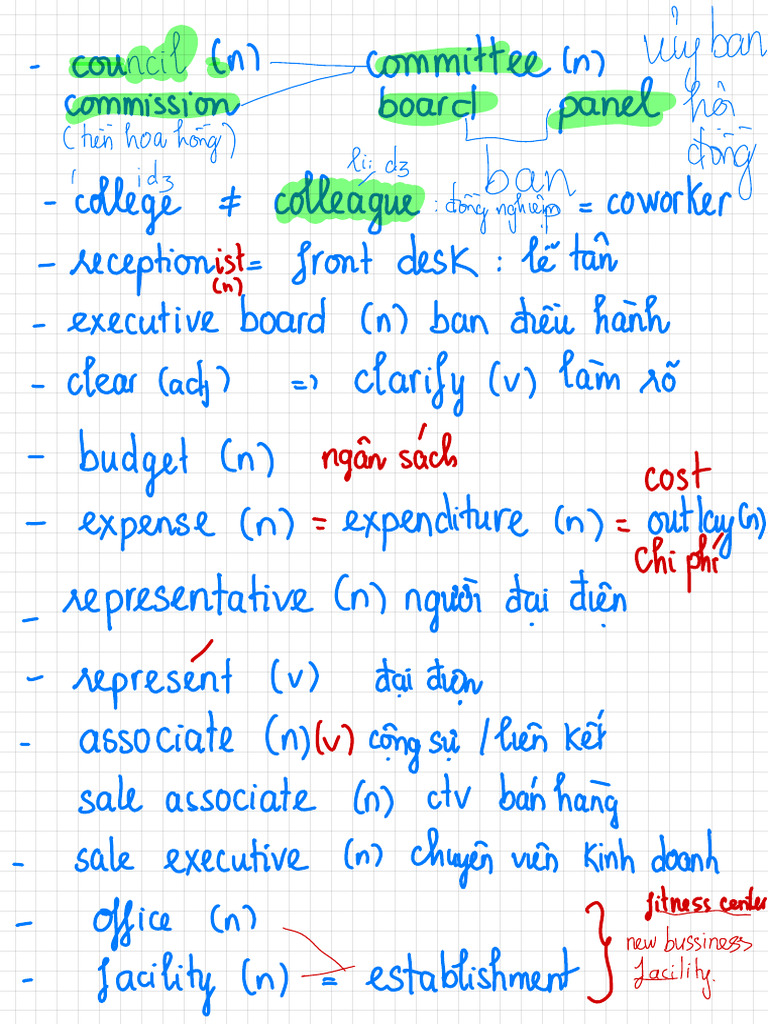 - council (n) committee (n) ủy ban
commission board panel hội
(tiền hoa hồng) đồng
idʒ li: dʒ ban
- college ≠ colleague : đồng nghiệp = coworker
- receptionist = front desk : lễ tân
(n)
- executive board (n) ban điều hành
- clear (adj) => clarify (v) làm rõ
- budget (n) ngân sách
cost
- expense (n) = expenditure (n) = outlay (n)
chi phí
- representative (n) người đại diện
- represent (v) đại diện
- associate (n) (v) cộng sự / liên kết
sale associate (n) ctv bán hàng
- sale executive (n) chuyên viên kinh doanh
- office (n) fitness center
new bussiness
- facility (n) = establishment facility.